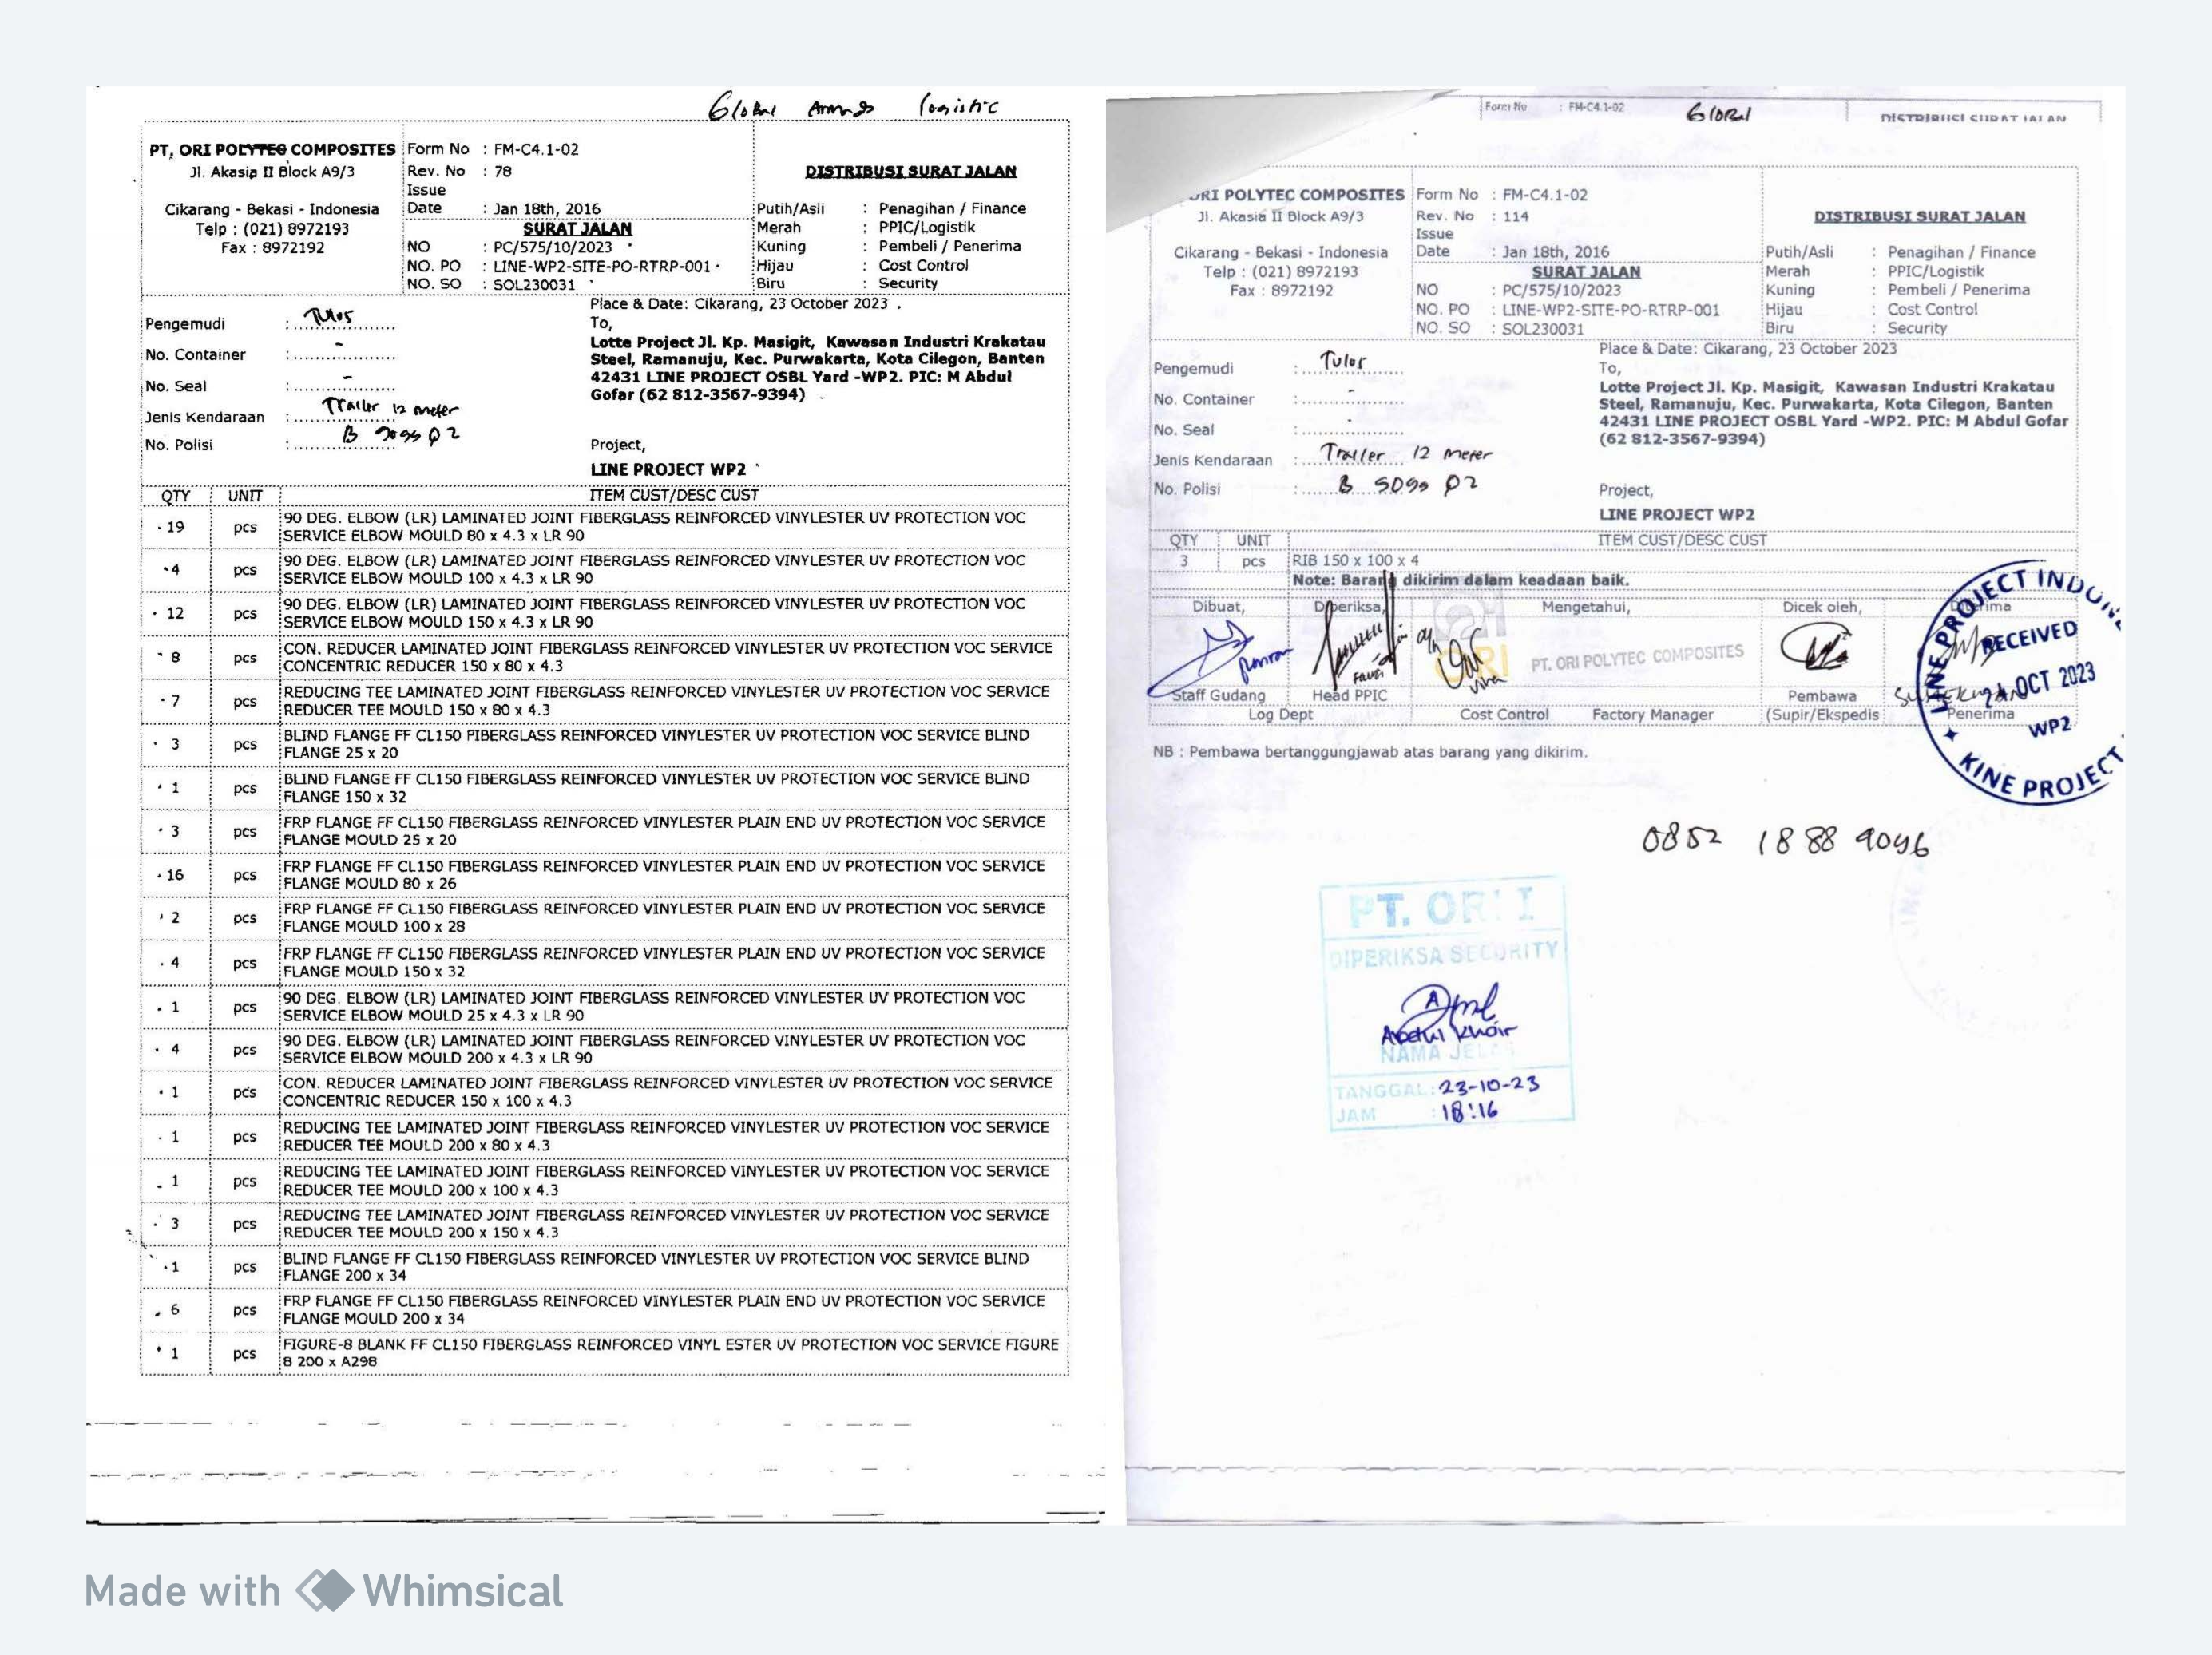 Global logistic
PT. ORI POLYTEC COMPOSITES
Jl. Akasia II Block A9/3
Cikarang - Bekasi - Indonesia
Telp : (021) 8972193
Fax : 8972192
Form No : FM-C4.1-02
Rev. No : 78
Issue
Date : Jan 18th, 2016
SURAT JALAN
NO : PC/575/10/2023
NO. PO : LINE-WP2-SITE-PO-RTRP-001
NO. SO : SOL230031
DISTRIBUSI SURAT JALAN
Putih/Asli : Penagihan / Finance
Merah : PPIC/Logistik
Kuning : Pembeli / Penerima
Hijau : Cost Control
Biru : Security
Pengemudi :
No. Container : -
No. Seal : -
Jenis Kendaraan : Trailer 12 meter
No. Polisi :
Place & Date: Cikarang, 23 October 2023
To,
Lotte Project Jl. Kp. Masigit, Kawasan Industri Krakatau
Steel, Ramanuju, Kec. Purwakarta, Kota Cilegon, Banten
42431 LINE PROJECT OSBL Yard -WP2. PIC: M Abdul
Gofar (62 812-3567-9394)
Project,
LINE PROJECT WP2
QTY UNIT ITEM CUST/DESC CUST
19 pcs 90 DEG. ELBOW (LR) LAMINATED JOINT FIBERGLASS REINFORCED VINYLESTER UV PROTECTION VOC
SERVICE ELBOW MOULD 80 x 4.3 x LR 90
4 pcs 90 DEG. ELBOW (LR) LAMINATED JOINT FIBERGLASS REINFORCED VINYLESTER UV PROTECTION VOC
SERVICE ELBOW MOULD 100 x 4.3 x LR 90
12 pcs 90 DEG. ELBOW (LR) LAMINATED JOINT FIBERGLASS REINFORCED VINYLESTER UV PROTECTION VOC
SERVICE ELBOW MOULD 150 x 4.3 x LR 90
8 pcs CON. REDUCER LAMINATED JOINT FIBERGLASS REINFORCED VINYLESTER UV PROTECTION VOC SERVICE
CONCENTRIC REDUCER 150 x 80 x 4.3
7 pcs REDUCING TEE LAMINATED JOINT FIBERGLASS REINFORCED VINYLESTER UV PROTECTION VOC SERVICE
REDUCER TEE MOULD 150 x 80 x 4.3
3 pcs BLIND FLANGE FF CL150 FIBERGLASS REINFORCED VINYLESTER UV PROTECTION VOC SERVICE BLIND
FLANGE 25 x 20
1 pcs BLIND FLANGE FF CL150 FIBERGLASS REINFORCED VINYLESTER UV PROTECTION VOC SERVICE BLIND
FLANGE 150 x 32
3 pcs FRP FLANGE FF CL150 FIBERGLASS REINFORCED VINYLESTER PLAIN END UV PROTECTION VOC SERVICE
FLANGE MOULD 25 x 20
16 pcs FRP FLANGE FF CL150 FIBERGLASS REINFORCED VINYLESTER PLAIN END UV PROTECTION VOC SERVICE
FLANGE MOULD 80 x 26
2 pcs FRP FLANGE FF CL150 FIBERGLASS REINFORCED VINYLESTER PLAIN END UV PROTECTION VOC SERVICE
FLANGE MOULD 100 x 28
4 pcs FRP FLANGE FF CL150 FIBERGLASS REINFORCED VINYLESTER PLAIN END UV PROTECTION VOC SERVICE
FLANGE MOULD 150 x 32
1 pcs 90 DEG. ELBOW (LR) LAMINATED JOINT FIBERGLASS REINFORCED VINYLESTER UV PROTECTION VOC
SERVICE ELBOW MOULD 25 x 4.3 x LR 90
4 pcs 90 DEG. ELBOW (LR) LAMINATED JOINT FIBERGLASS REINFORCED VINYLESTER UV PROTECTION VOC
SERVICE ELBOW MOULD 200 x 4.3 x LR 90
1 pcs CON. REDUCER LAMINATED JOINT FIBERGLASS REINFORCED VINYLESTER UV PROTECTION VOC SERVICE
CONCENTRIC REDUCER 150 x 100 x 4.3
1 pcs REDUCING TEE LAMINATED JOINT FIBERGLASS REINFORCED VINYLESTER UV PROTECTION VOC SERVICE
REDUCER TEE MOULD 200 x 80 x 4.3
1 pcs REDUCING TEE LAMINATED JOINT FIBERGLASS REINFORCED VINYLESTER UV PROTECTION VOC SERVICE
REDUCER TEE MOULD 200 x 100 x 4.3
3 pcs REDUCING TEE LAMINATED JOINT FIBERGLASS REINFORCED VINYLESTER UV PROTECTION VOC SERVICE
REDUCER TEE MOULD 200 x 150 x 4.3
1 pcs BLIND FLANGE FF CL150 FIBERGLASS REINFORCED VINYLESTER UV PROTECTION VOC SERVICE BLIND
FLANGE 200 x 34
6 pcs FRP FLANGE FF CL150 FIBERGLASS REINFORCED VINYLESTER PLAIN END UV PROTECTION VOC SERVICE
FLANGE MOULD 200 x 34
1 pcs FIGURE-8 BLANK FF CL150 FIBERGLASS REINFORCED VINYL ESTER UV PROTECTION VOC SERVICE FIGURE
8 200 x A298
Form No : FM-C4.1-02
Global
DISTRIBUSI SURAT JALAN
ORI POLYTEC COMPOSITES
Jl. Akasia II Block A9/3
Cikarang - Bekasi - Indonesia
Telp : (021) 8972193
Fax : 8972192
Form No : FM-C4.1-02
Rev. No : 114
Issue
Date : Jan 18th, 2016
SURAT JALAN
NO : PC/575/10/2023
NO. PO : LINE-WP2-SITE-PO-RTRP-001
NO. SO : SOL230031
DISTRIBUSI SURAT JALAN
Putih/Asli : Penagihan / Finance
Merah : PPIC/Logistik
Kuning : Pembeli / Penerima
Hijau : Cost Control
Biru : Security
Pengemudi : Tulos
No. Container : -
No. Seal : -
Jenis Kendaraan : Trailer 12 meter
No. Polisi :
Place & Date: Cikarang, 23 October 2023
To,
Lotte Project Jl. Kp. Masigit, Kawasan Industri Krakatau
Steel, Ramanuju, Kec. Purwakarta, Kota Cilegon, Banten
42431 LINE PROJECT OSBL Yard -WP2. PIC: M Abdul Gofar
(62 812-3567-9394)
Project,
LINE PROJECT WP2
QTY UNIT ITEM CUST/DESC CUST
3 pcs RIB 150 x 100 x 4
Note: Barang dikirim dalam keadaan baik.
Dibuat, Diperiksa, Mengetahui, Dicek oleh, Diterima
ORI
PT. ORI POLYTEC COMPOSITES
Staff Gudang Head PPIC Pembawa
Log Dept Cost Control Factory Manager (Supir/Ekspedis Penerima
LINE PROJECT INDONE
RECEIVED
24 OCT 2023
WP2
KINE PROJECT
NB : Pembawa bertanggungjawab atas barang yang dikirim.
0852 1888 9096
PT. ORI
DIPERIKSA SECURITY
Abdul Khoir
NAMA JELAS
TANGGAL : 23-10-23
JAM : 18:16
Made with Whimsical